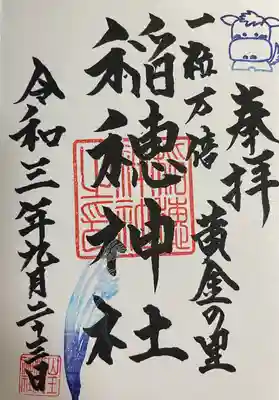 奉拝
一粒万倍 黄金の里
稲穂神社
令和三年九月二十二日